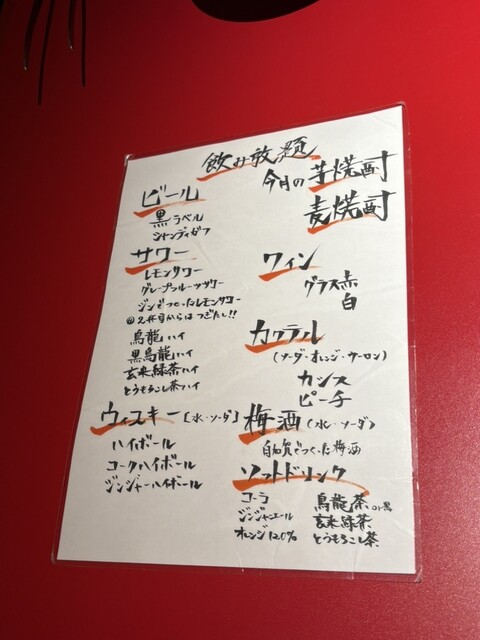 飲み放題
ビール
黒ラベル
シャンディガフ
サワー
レモンサワー
グレープフルーツサワー
ジンでつくったレモンサワー
2杯目からはつぎたし!!
烏龍ハイ
黒烏龍ハイ
玄米緑茶ハイ
とうもろこし茶ハイ
ウィスキー [水・ソーダ]
ハイボール
コークハイボール
ジンジャーハイボール
今月の芋焼酎
麦焼酎
ワイン
グラス赤
白
カクテル
(ソーダ・オレンジ・ウーロン)
カシス
ピーチ
梅酒 (水・ソーダ)
自加賀でつくった梅酒
ソフトドリンク
コーラ
ジンジャエール
オレンジ120%
烏龍茶 or黒
玄米緑茶
とうもろこし茶